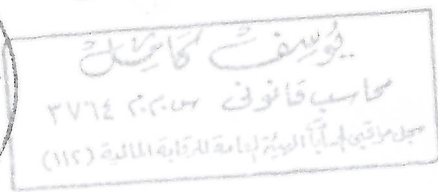 يوسف كامل
محاسب قانونى س.م.م ٣٧٦٤
سجل مراقبى الحسابات الهيئة العامة للرقابة المالية (١١٢)